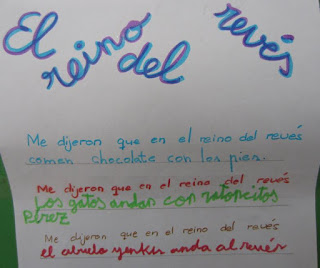 El reino del revés
Me dijeron que en el reino del revés
comen chocolate con los pies.
Me dijeron que en el reino del revés
Los gatos andan con ratoncitos
Pérez
Me dijeron que en el reino del revés
el abuelo anda al revés